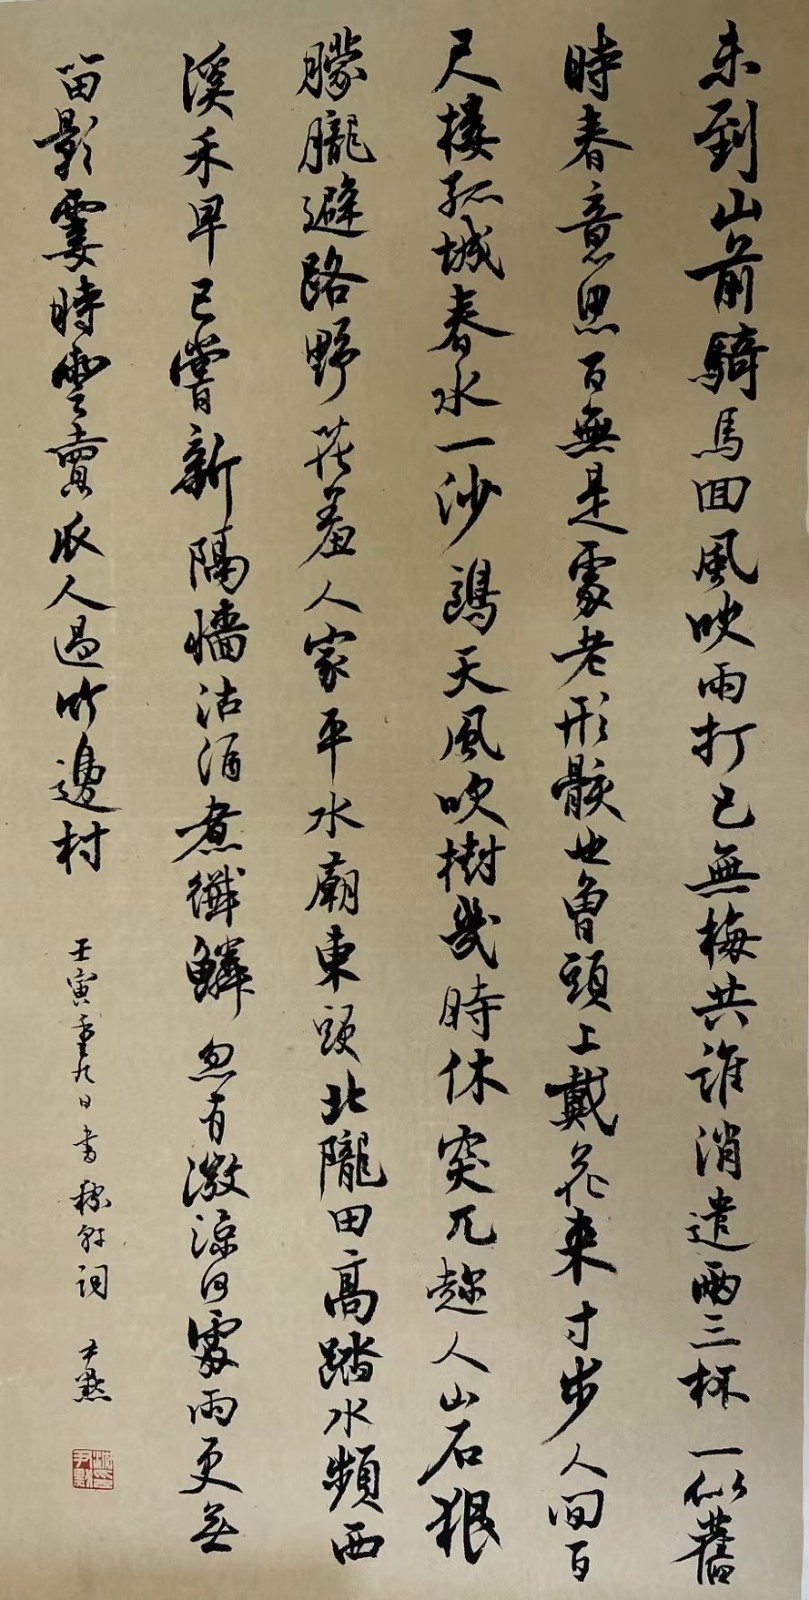 未到山前騎馬回風吹雨打已無梅共誰消遣兩三杯一似舊
時春意思百無是處老形骸也曾頭上戴花來寸步人間百
尺樓孤城春水一沙鷗天風吹樹幾時休突兀趁人山石狠
朦朧避路野花羞人家平水廟東頭北隴田高踏水頻西
溪禾早已嘗新隔墻沽酒煮纖鱗忽有微涼何處雨更無
留影霎時雲賣瓜人過竹邊村
壬寅重九日書稼軒詞